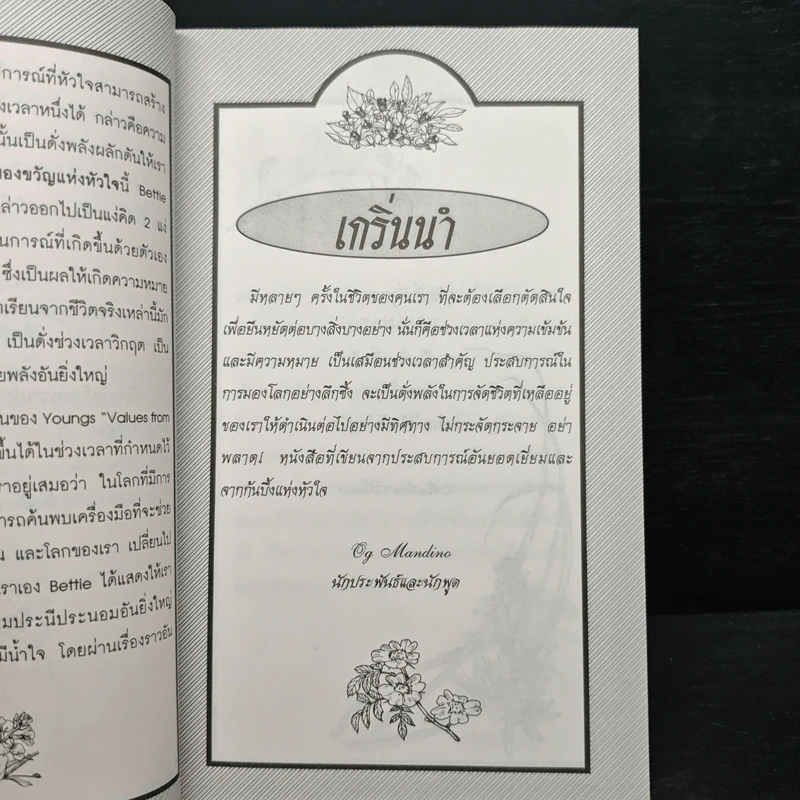 การณ์ที่หัวใจสามารถสร้าง
งเวลาหนึ่งได้ กล่าวคือความ
นั้นเป็นดั่งพลังผลักดันให้เรา
องขวัญแห่งหัวใจนี้ Bettie
ล่าวออกไปเป็นแง่คิด 2 แง่
นการณ์ที่เกิดขึ้นด้วยตัวเอง
ซึ่งเป็นผลให้เกิดความหมาย
าเรียนจากชีวิตจริงเหล่านี้มัก
เป็นดั่งช่วงเวลาวิกฤต เป็น
ยพลังอันยิ่งใหญ่
นของ Youngs “Values from
ขึ้นได้ในช่วงเวลาที่กำหนดไว้
ราอยู่เสมอว่า ในโลกที่มีการ
ารถค้นพบเครื่องมือที่จะช่วย
น และโลกของเรา เปลี่ยนไป
ราเอง Bettie ได้แสดงให้เรา
มประนีประนอมอันยิ่งใหญ่
มีน้ำใจ โดยผ่านเรื่องราวอัน
เกริ่นนำ
มีหลายๆ ครั้งในชีวิตของคนเรา ที่จะต้องเลือกตัดสินใจ
เพื่อยืนหยัดต่อบางสิ่งบางอย่าง นั่นก็คือช่วงเวลาแห่งความเข้มข้น
และมีความหมาย เป็นเสมือนช่วงเวลาสำคัญ ประสบการณ์ใน
การมองโลกอย่างลึกซึ้ง จะเป็นดั่งพลังในการจัดชีวิตที่เหลืออยู่
ของเราให้ดำเนินต่อไปอย่างมีทิศทาง ไม่กระจัดกระจาย อย่า
พลาด! หนังสือที่เขียนจากประสบการณ์อันยอดเยี่ยมและ
จากก้นบึ้งแห่งหัวใจ
Og Mandino
นักประพันธ์และนักพูด